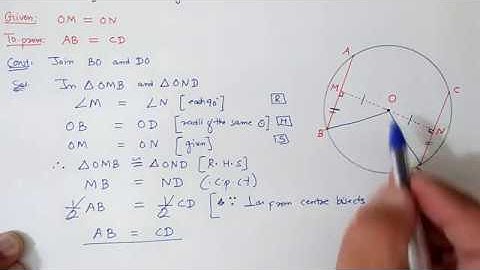 Given: OM = ON
To prove: AB = CD
Const: Join BO and DO
Sol: In △OMB and △OND
∠M = ∠N [each 90°] R
OB = OD [radii of the same O] H
OM = ON [given] S
∴ △OMB ≅ △OND [R.H.S]
MB = ND (C.P.C.T)
1/2 AB = 1/2 CD [∵ ⊥ar from centre bisects
AB = CD
A
M
B
O
C
N